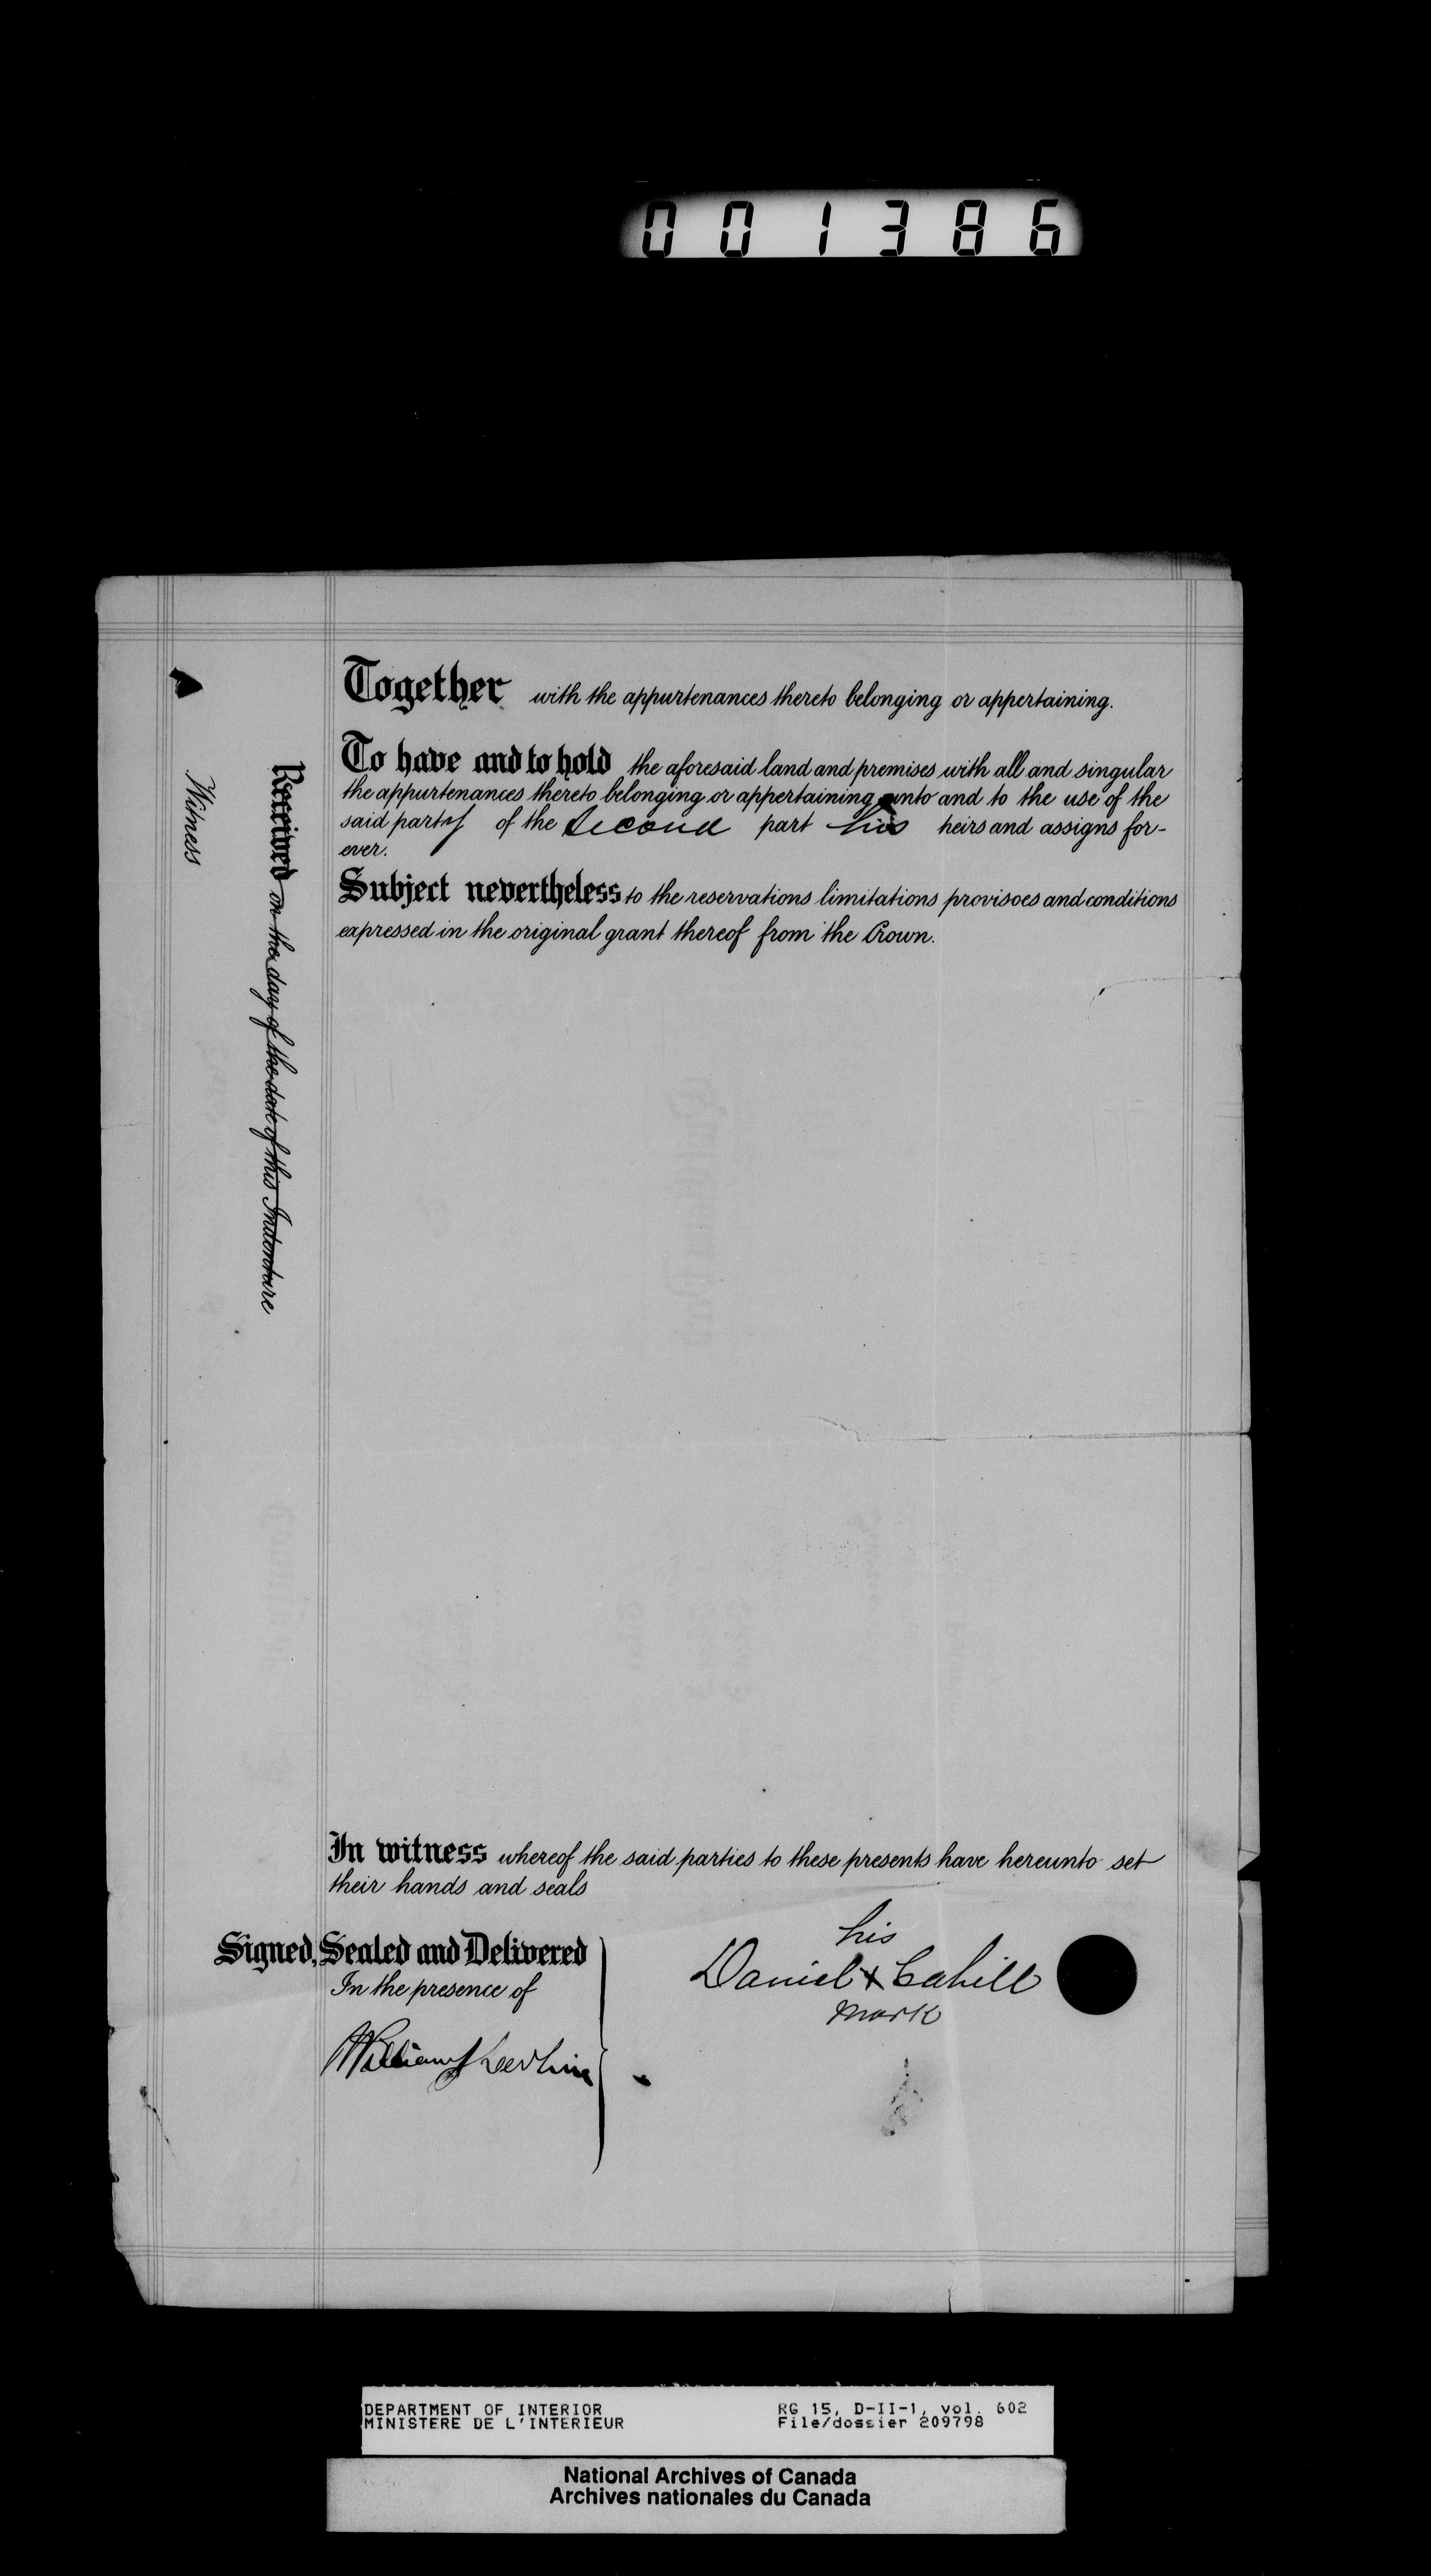 001386
Together with the appurtenances thereto belonging or appertaining.
To have and to hold the aforesaid land and premises with all and singular
the appurtenances thereto belonging or appertaining unto and to the use of the
said party of the Second part his heirs and assigns for-
ever.
Subject nevertheless to the reservations limitations provisoes and conditions
expressed in the original grant thereof from the Crown.
Received on the day of the date of this Indenture
Witness
In witness whereof the said parties to these presents have hereunto set
their hands and seals
Signed, Sealed and Delivered
In the presence of
William J
his
Daniel X Cahill
mark
DEPARTMENT OF INTERIOR
MINISTERE DE L'INTERIEUR
RG 15, D-II-1, vol. 602
File/dossier 209798
National Archives of Canada
Archives nationales du Canada